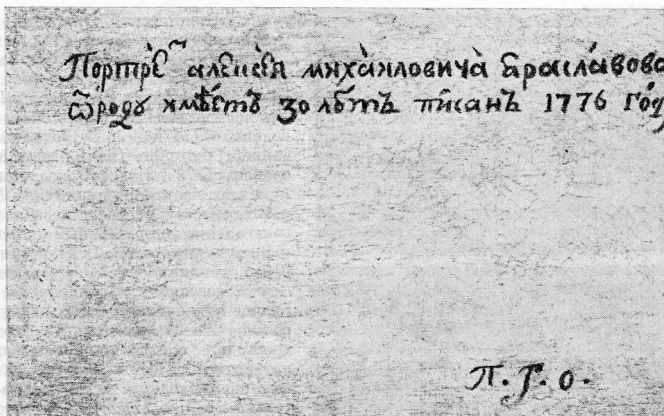 Портре͗ т алеѯе́я миха́иловича Ерасла́вова
ѿроду имѣетъ 30 лѣтъ писанъ 1776 год
П. Г. О.